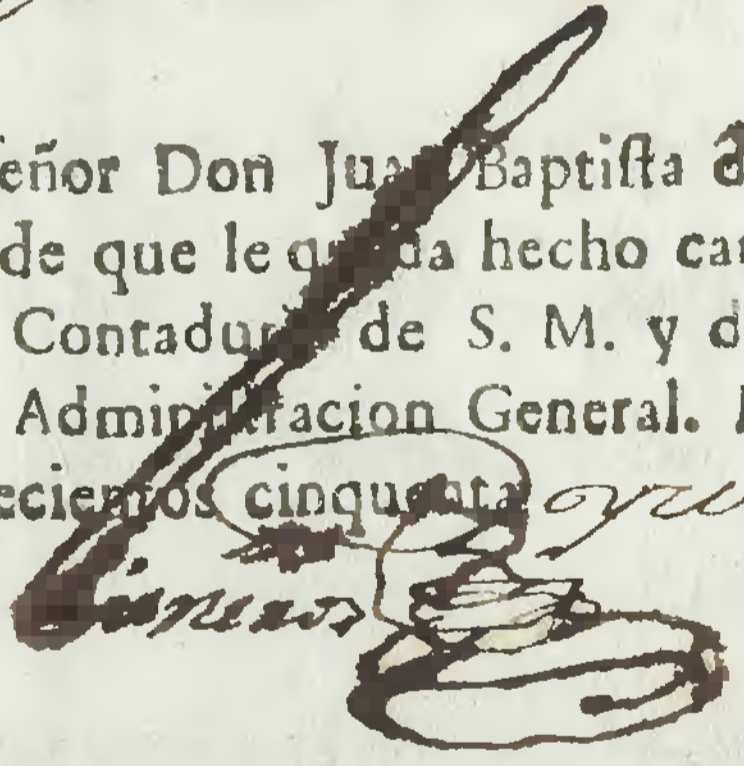 eñor Don Juan Baptiſta d
de que le queda hecho ca
Contaduria de S. M. y d
Adminiſtracion General.
ecientos cinquenta